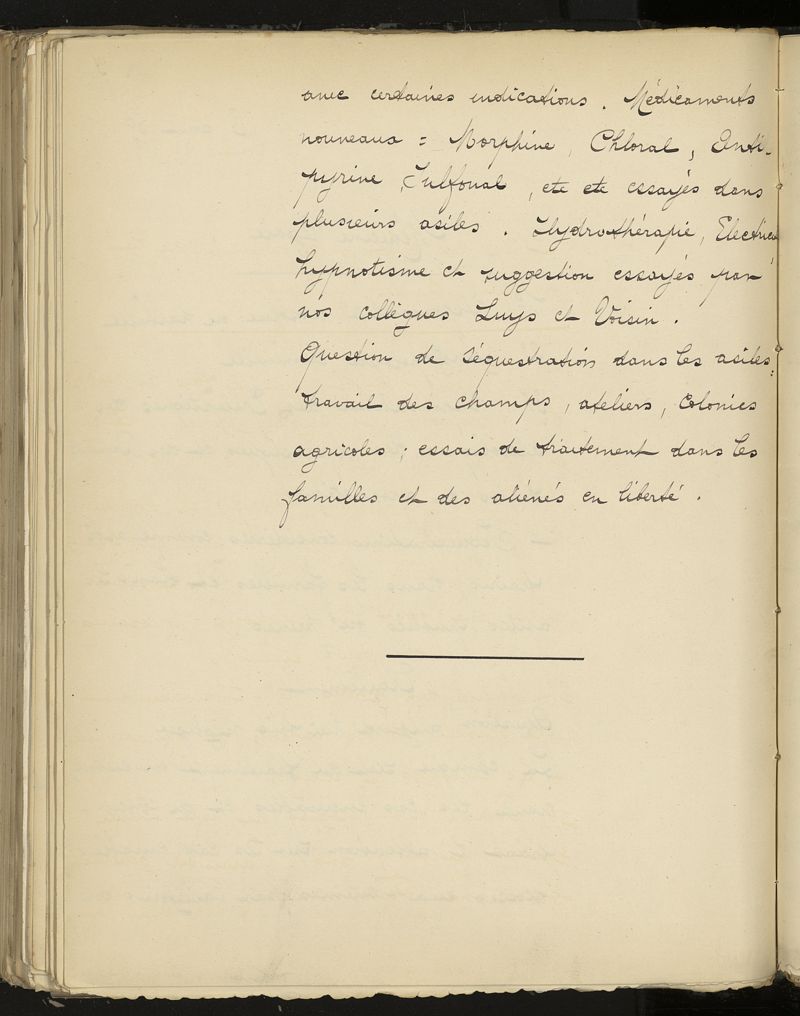 avec certaines indications. Médicaments
nouveaux = Morphine, Chloral, Anti-
pyrine, Sulfonal, etc etc essayés dans
plusieurs asiles. Hydrothérapie,
hypnotisme et suggestion essayés par
nos collègues Luys et Voisin.
Question de séquestration dans les asiles:
travail des champs, ateliers, Colonies
agricoles; essais de traitement dans les
familles et des aliénés en liberté.